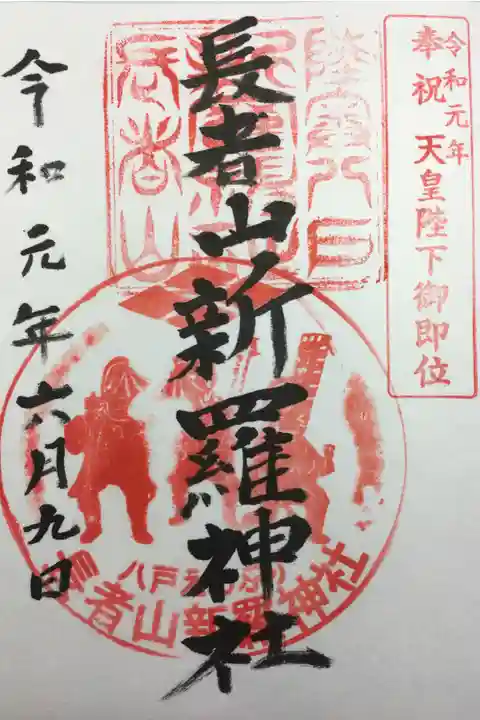 令和元年
奉祝 天皇陛下御即位
長者山新羅神社
令和元年六月九日
長者山新羅神社